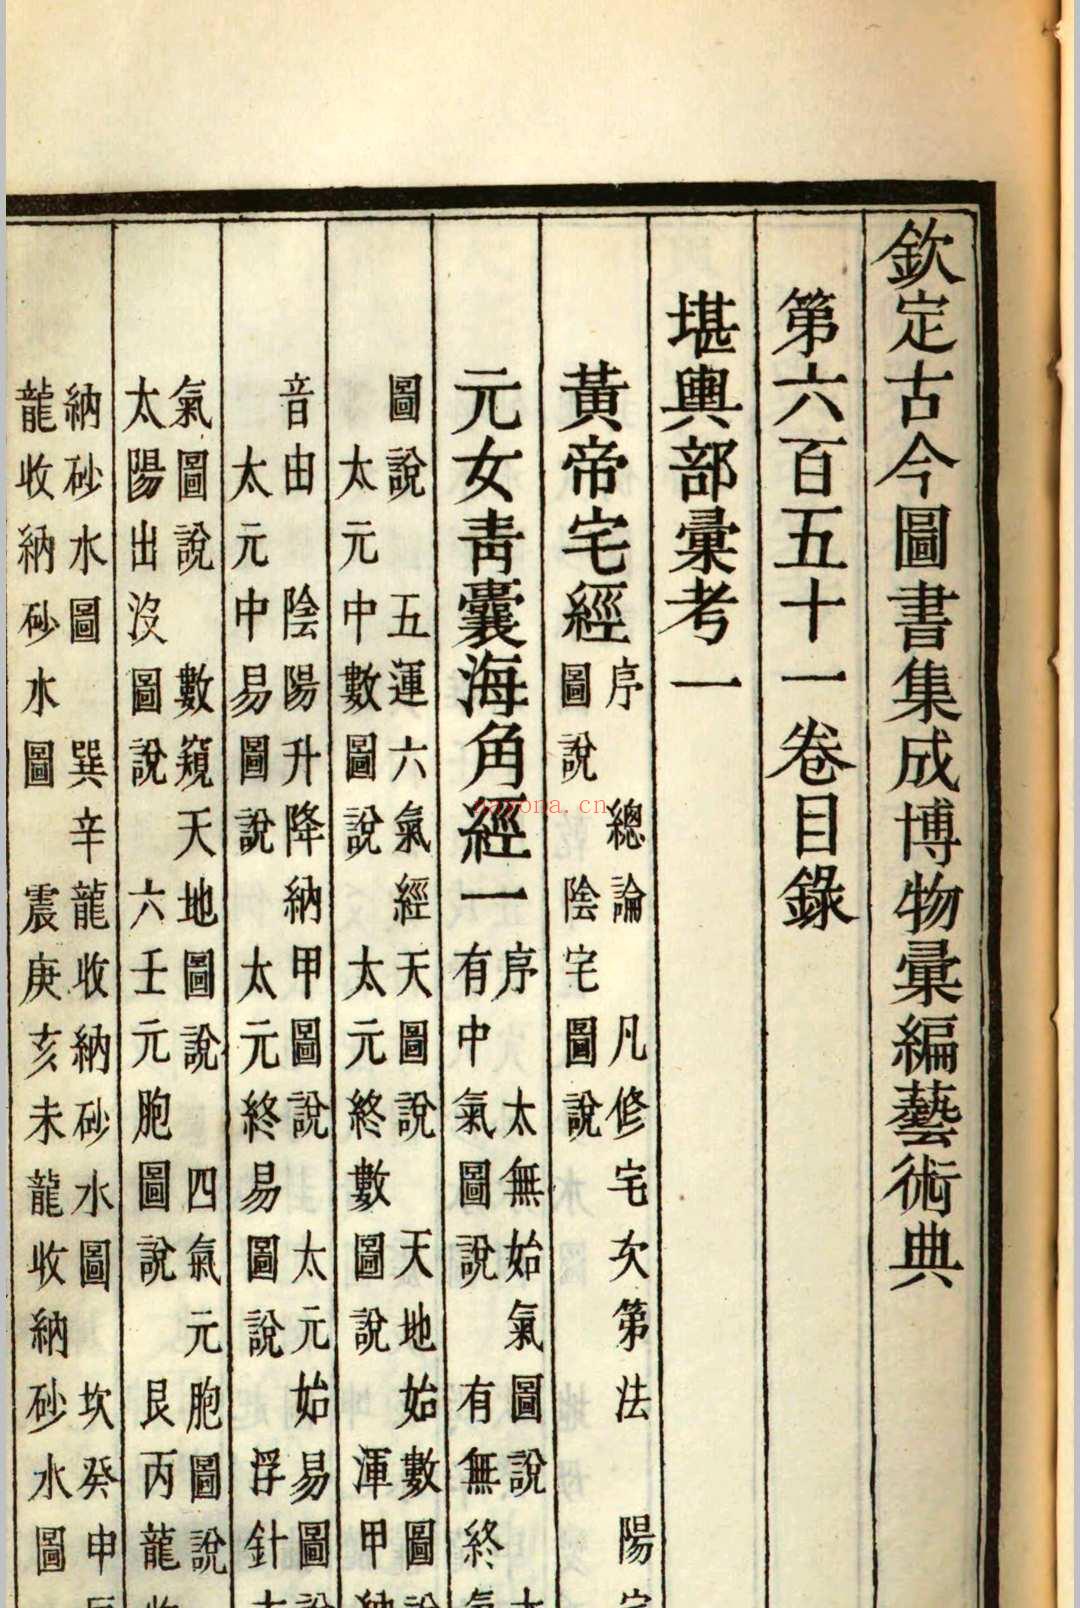 欽定古今圖書集成博物彙編藝術典
第六百五十一卷目錄
堪輿部彙考一
黃帝宅經
序 總論 凡修宅次第法 陽宅
圖說 陰宅圖說
元女青囊海角經一
序 太無始氣圖說 太
有中氣圖說 有無終氣
圖說 五運六氣經天圖說 天地始數圖說
太元中數圖說 太元終數圖說 渾甲納
音由 陰陽升降納甲圖說 太元始易圖說
太元中易圖說 太元終易圖說 浮針
氣圖說 數窺天地圖說 四氣元胞圖說
太陽出沒圖說 六壬元胞圖說 艮丙龍收
納砂水圖 巽辛龍收納砂水圖 坎癸申
龍收納砂水圖 震庚亥未龍收納砂水圖
nayona.cn